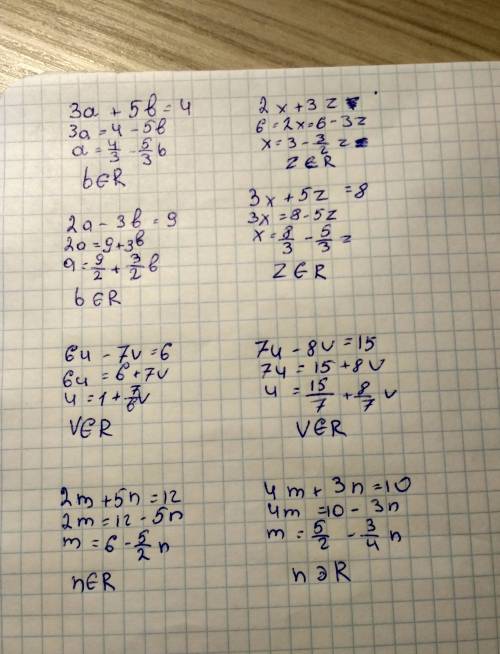 3a + 5b = 4
3a = 4 - 5b
a = 4/3 - 5/3 b
b ∈ R
2a - 3b = 9
2a = 9 + 3b
a = 9/2 + 3/2 b
b ∈ R
6u - 7v = 6
6u = 6 + 7v
u = 1 + 7/6 v
v ∈ R
2m + 5n = 12
2m = 12 - 5n
m = 6 - 5/2 n
n ∈ R
2x + 3z
6 = 2x = 6 - 3z
x = 3 - 3/2 z
z ∈ R
3x + 5z = 8
3x = 8 - 5z
x = 8/3 - 5/3 z
z ∈ R
7u - 8v = 15
7u = 15 + 8v
u = 15/7 + 8/7 v
v ∈ R
4m + 3n = 10
4m = 10 - 3n
m = 5/2 - 3/4 n
n ∋ R